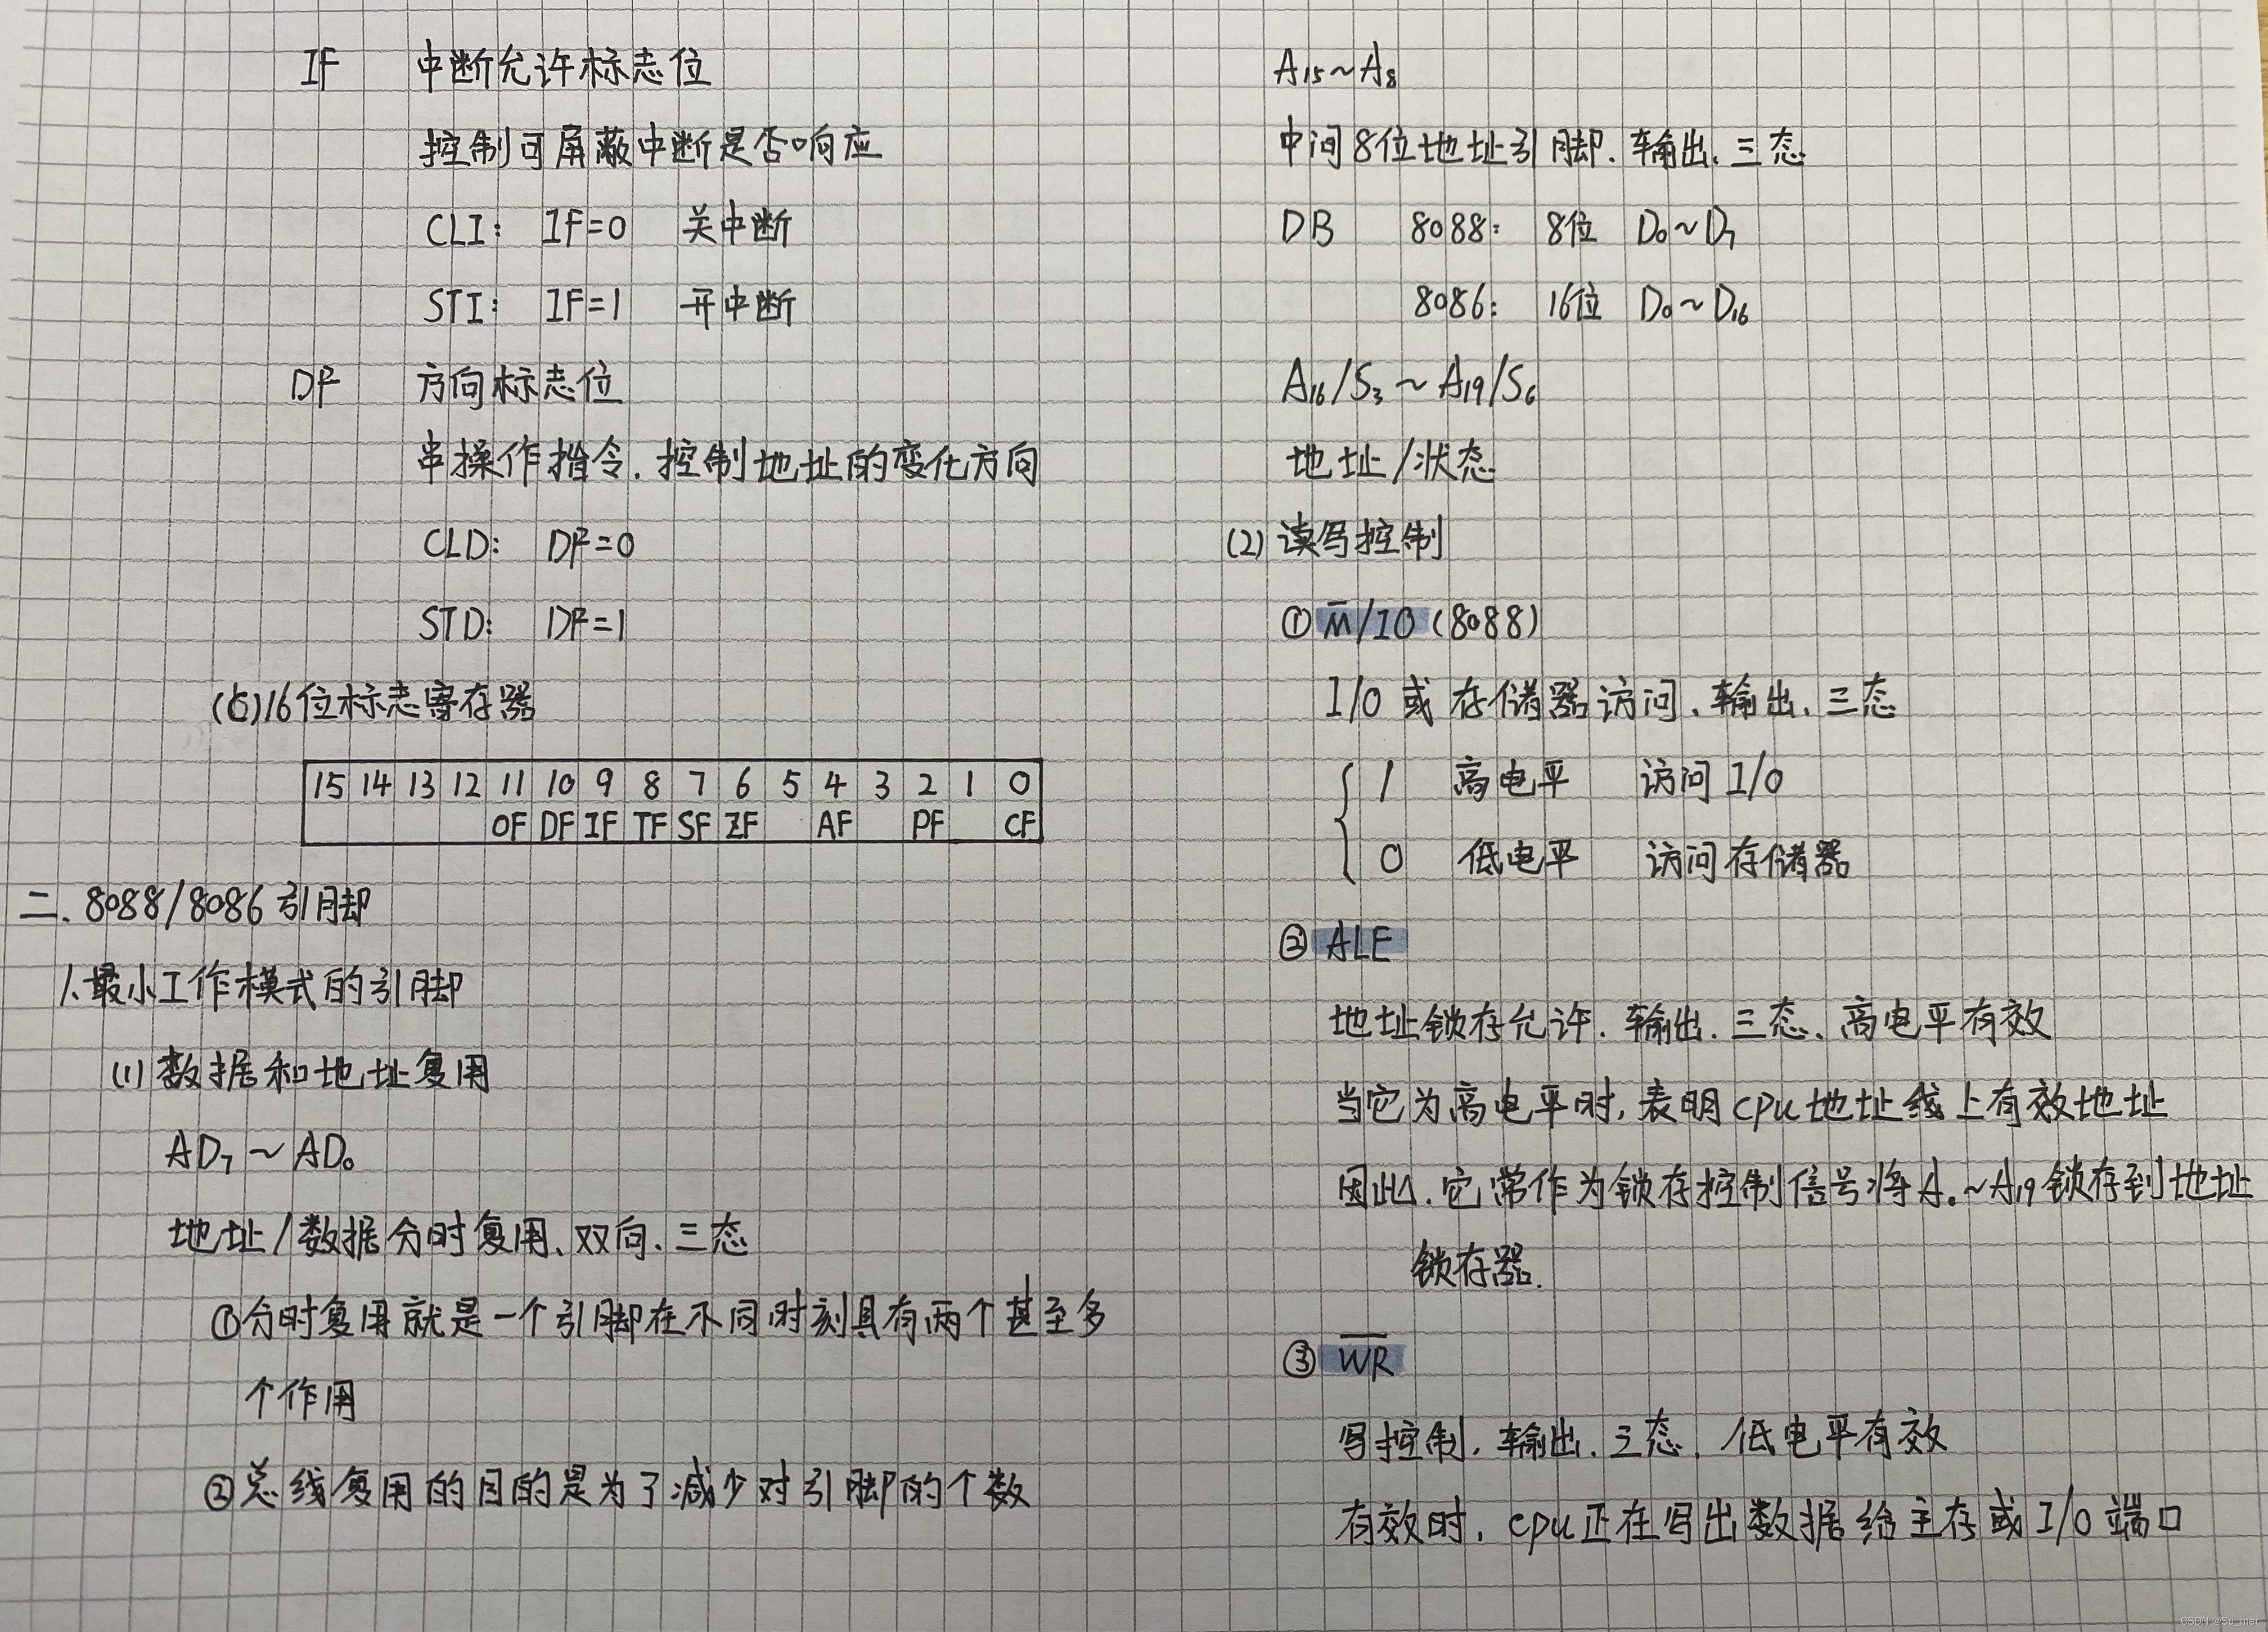 IF 中断允许标志位
控制可屏蔽中断是否响应
CLI: IF=0 关中断
STI: IF=1 开中断
DF 方向标志位
串操作指令.控制地址的变化方向
CLD: DF=0
STD: DF=1
(6)16位标志寄存器
15 14 13 12 11 10 9 8 7 6 5 4 3 2 1 0
OF DF IF TF SF ZF AF PF CF
二.8088/8086引脚
1.最小工作模式的引脚
(1)数据和地址复用
AD₇~AD₀
地址/数据分时复用、双向、三态
①分时复用就是一个引脚在不同时刻具有两个甚至多
个作用
②总线复用的目的是为了减少对引脚的个数
A₁₅~A₈
中间8位地址引脚.输出、三态
DB 8088: 8位 D₀~D₇
8086: 16位 D₀~D₁₆
A₁₆/S₃~A₁₉/S₆
地址/状态
(2)读写控制
①M̅/IO(8088)
I/O或存储器访问、输出、三态
1 高电平 访问I/O
0 低电平 访问存储器
②ALE
地址锁存允许.输出.三态、高电平有效
当它为高电平时,表明cpu地址线上有效地址
因此.它常作为锁存控制信号将A₀~A₁₉锁存到地址
锁存器.
③W̅R̅
写控制.输出.三态.低电平有效
有效时.cpu正在写出数据给主存或I/O端口
CSDN @Su_mer